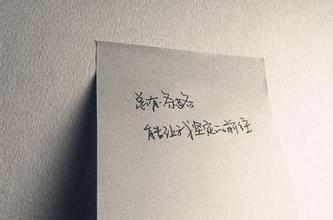 总有一条路
能让我坚定的前